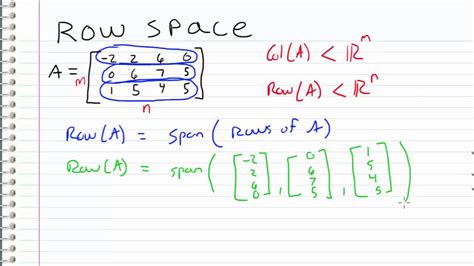 Row Space
A = m [ -2 2 6 0
0 6 7 5
1 5 4 5 ]
n
Col(A) < ℝ^m
Row(A) < ℝ^n
Row(A) = span( rows of A )
Row(A) = span( [ -2 2 6 0 ] , [ 0 6 7 5 ] , [ 1 5 4 5 ] )